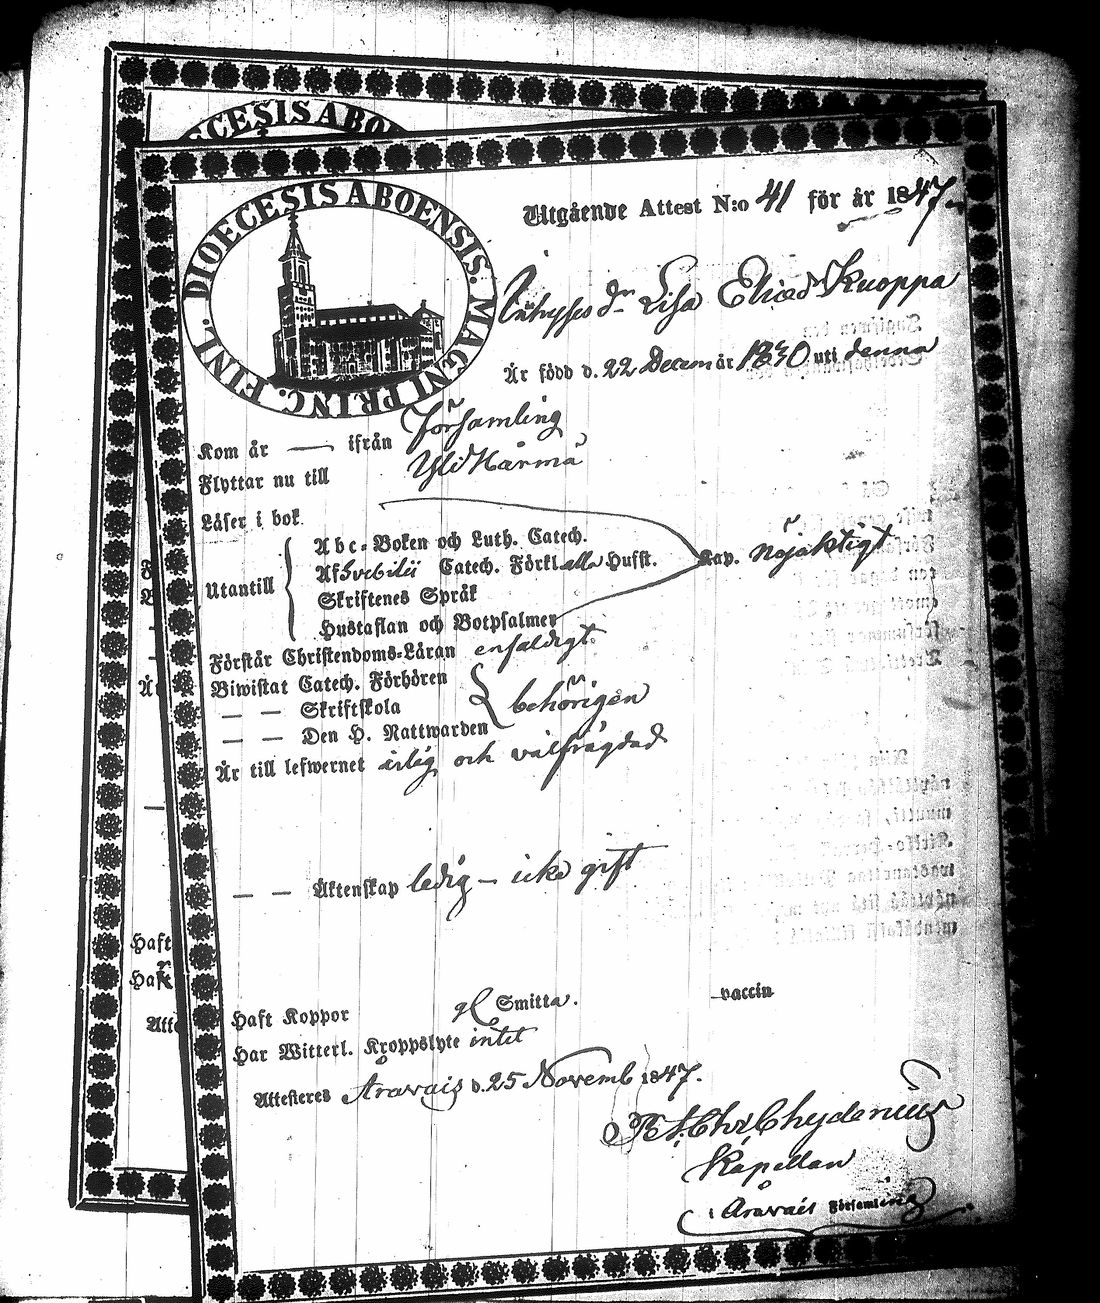 DIOECESIS ABOENSIS. MAGNI PRINC. FINL.
Utgående Attest N:o 41 för år 1847
Inhyses dr Lisa Elisd Kuoppa
Är född d. 22 Decem år 1830 uti denna
Kom år — ifrån församling
Flyttar nu till Yli Härmä
Läser i bok.
Utantill
Abc-Boken och Luth. Catech.
Af Svebilii Catech. Förkl alla Hufst.
Skriftenes Språk
Hustaflan och Botpsalmer
Kap. nöjaktigt
Förstår Christendoms-Läran enfaldigt
Biwistat Catech. Förhören
— — Skriftskola behörigen
— — Den H. Nattwarden
Är till lefwernet ärlig och välfrägdad
— — Äktenskap ledig – icke gift
Haft Koppor gl Smitta. vaccin
Har Witterl. Kroppslyte intet
Attesteres Åravais d. 25 Novemb 1847.
Chr Chydenius
Kapellan
i Åravais Församling
ECESIS ABO
Haft
Haft
Atte